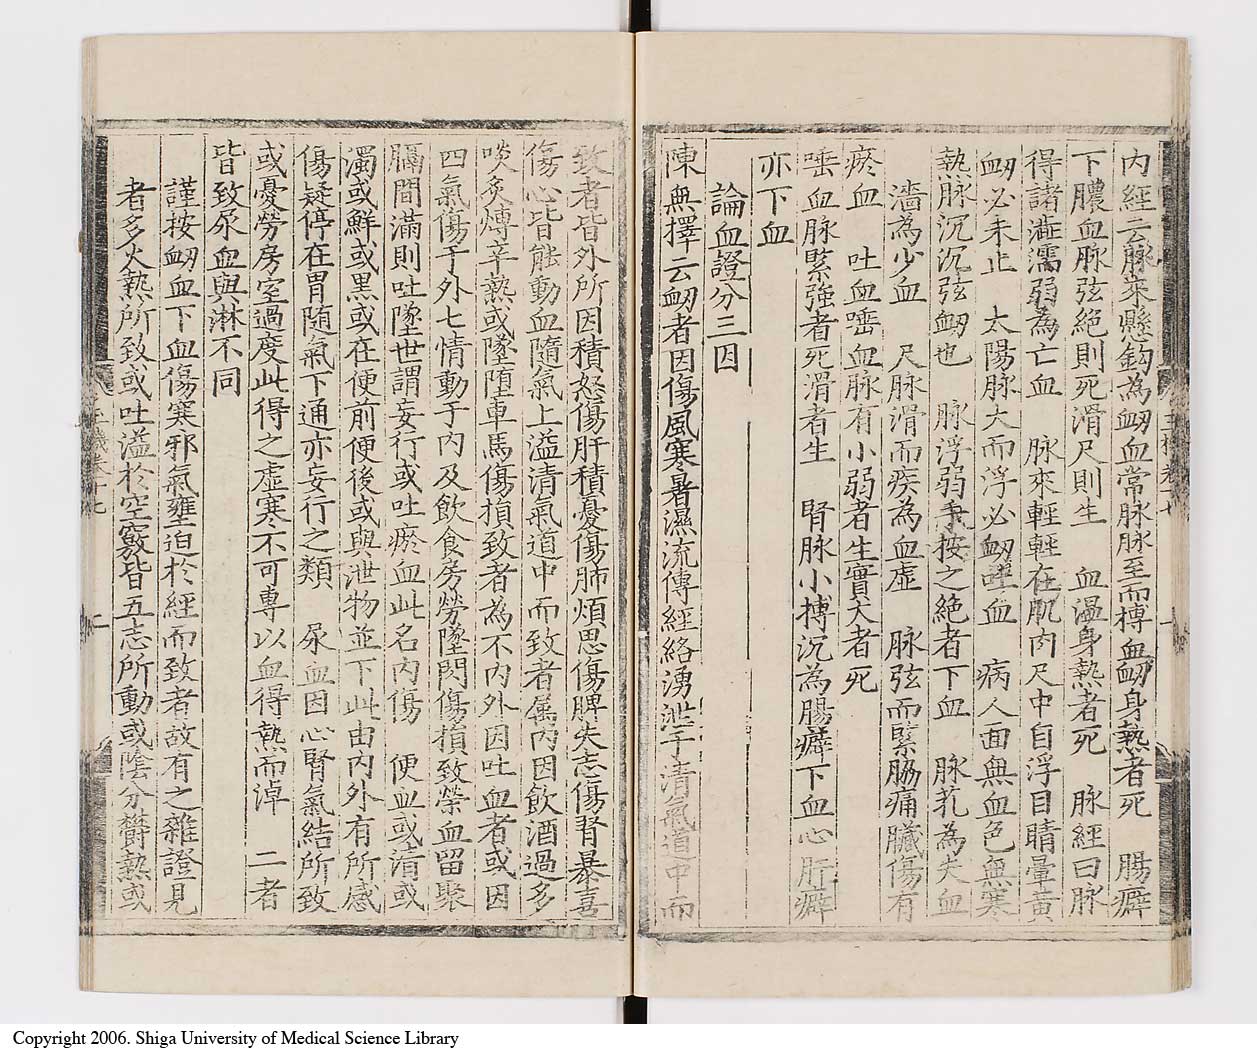 內經云脉來懸鈎為衂血常脉脉至而搏血衂身熱者死　腸癖
下膿血脉弦絶則死滑尺則生　血溫身熱者死　脉經曰脉
得諸濇濡弱為亡血　脉來輕輕在肌肉尺中自浮目睛暈黃
衂必未止　太陽脉大而浮必衂唾血　病人面無血色無寒
熱脉沉沉弦衂也　脉浮弱手按之絶者下血　脉芤為失血
濇為少血　尺脉滑而疾為血虛　脉弦而緊脇痛臟傷有
瘀血　吐血唾血脉有小弱者生實大者死
唾血脉緊強者死滑者生　腎脉小搏沉為腸癖下血心肝癖
亦下血
論血證分三因
陳無擇云衂者因傷風寒暑濕流傳經絡湧泄于清氣道中而
致者皆外所因積怒傷肝積憂傷肺煩思傷脾失志傷腎暴喜
傷心皆能動血隨氣上溢清氣道中而致者属內因飲酒過多
啖炙煿辛熱或墜墮車馬傷損致者為不內外因吐血者或因
四氣傷于外七情動于內及飲食房勞墜閃傷損致榮血留聚
膈間滿則吐墜世謂妄行或吐瘀血此名內傷　便血或清或
濁或鮮或黒或在便前便後或與泄物並下此由內外有所感
傷疑停在胃随氣下通亦妄行之類　尿血因心腎氣結所致
或憂勞房室過度此得之虛寒不可專以血得熱而淖　二者
皆致尿血與淋不同
謹按衂血下血傷寒邪氣壅迫於經而致者故有之雜證見
者多火熱所致或吐溢於空竅皆五志所動或陰分欝熱或